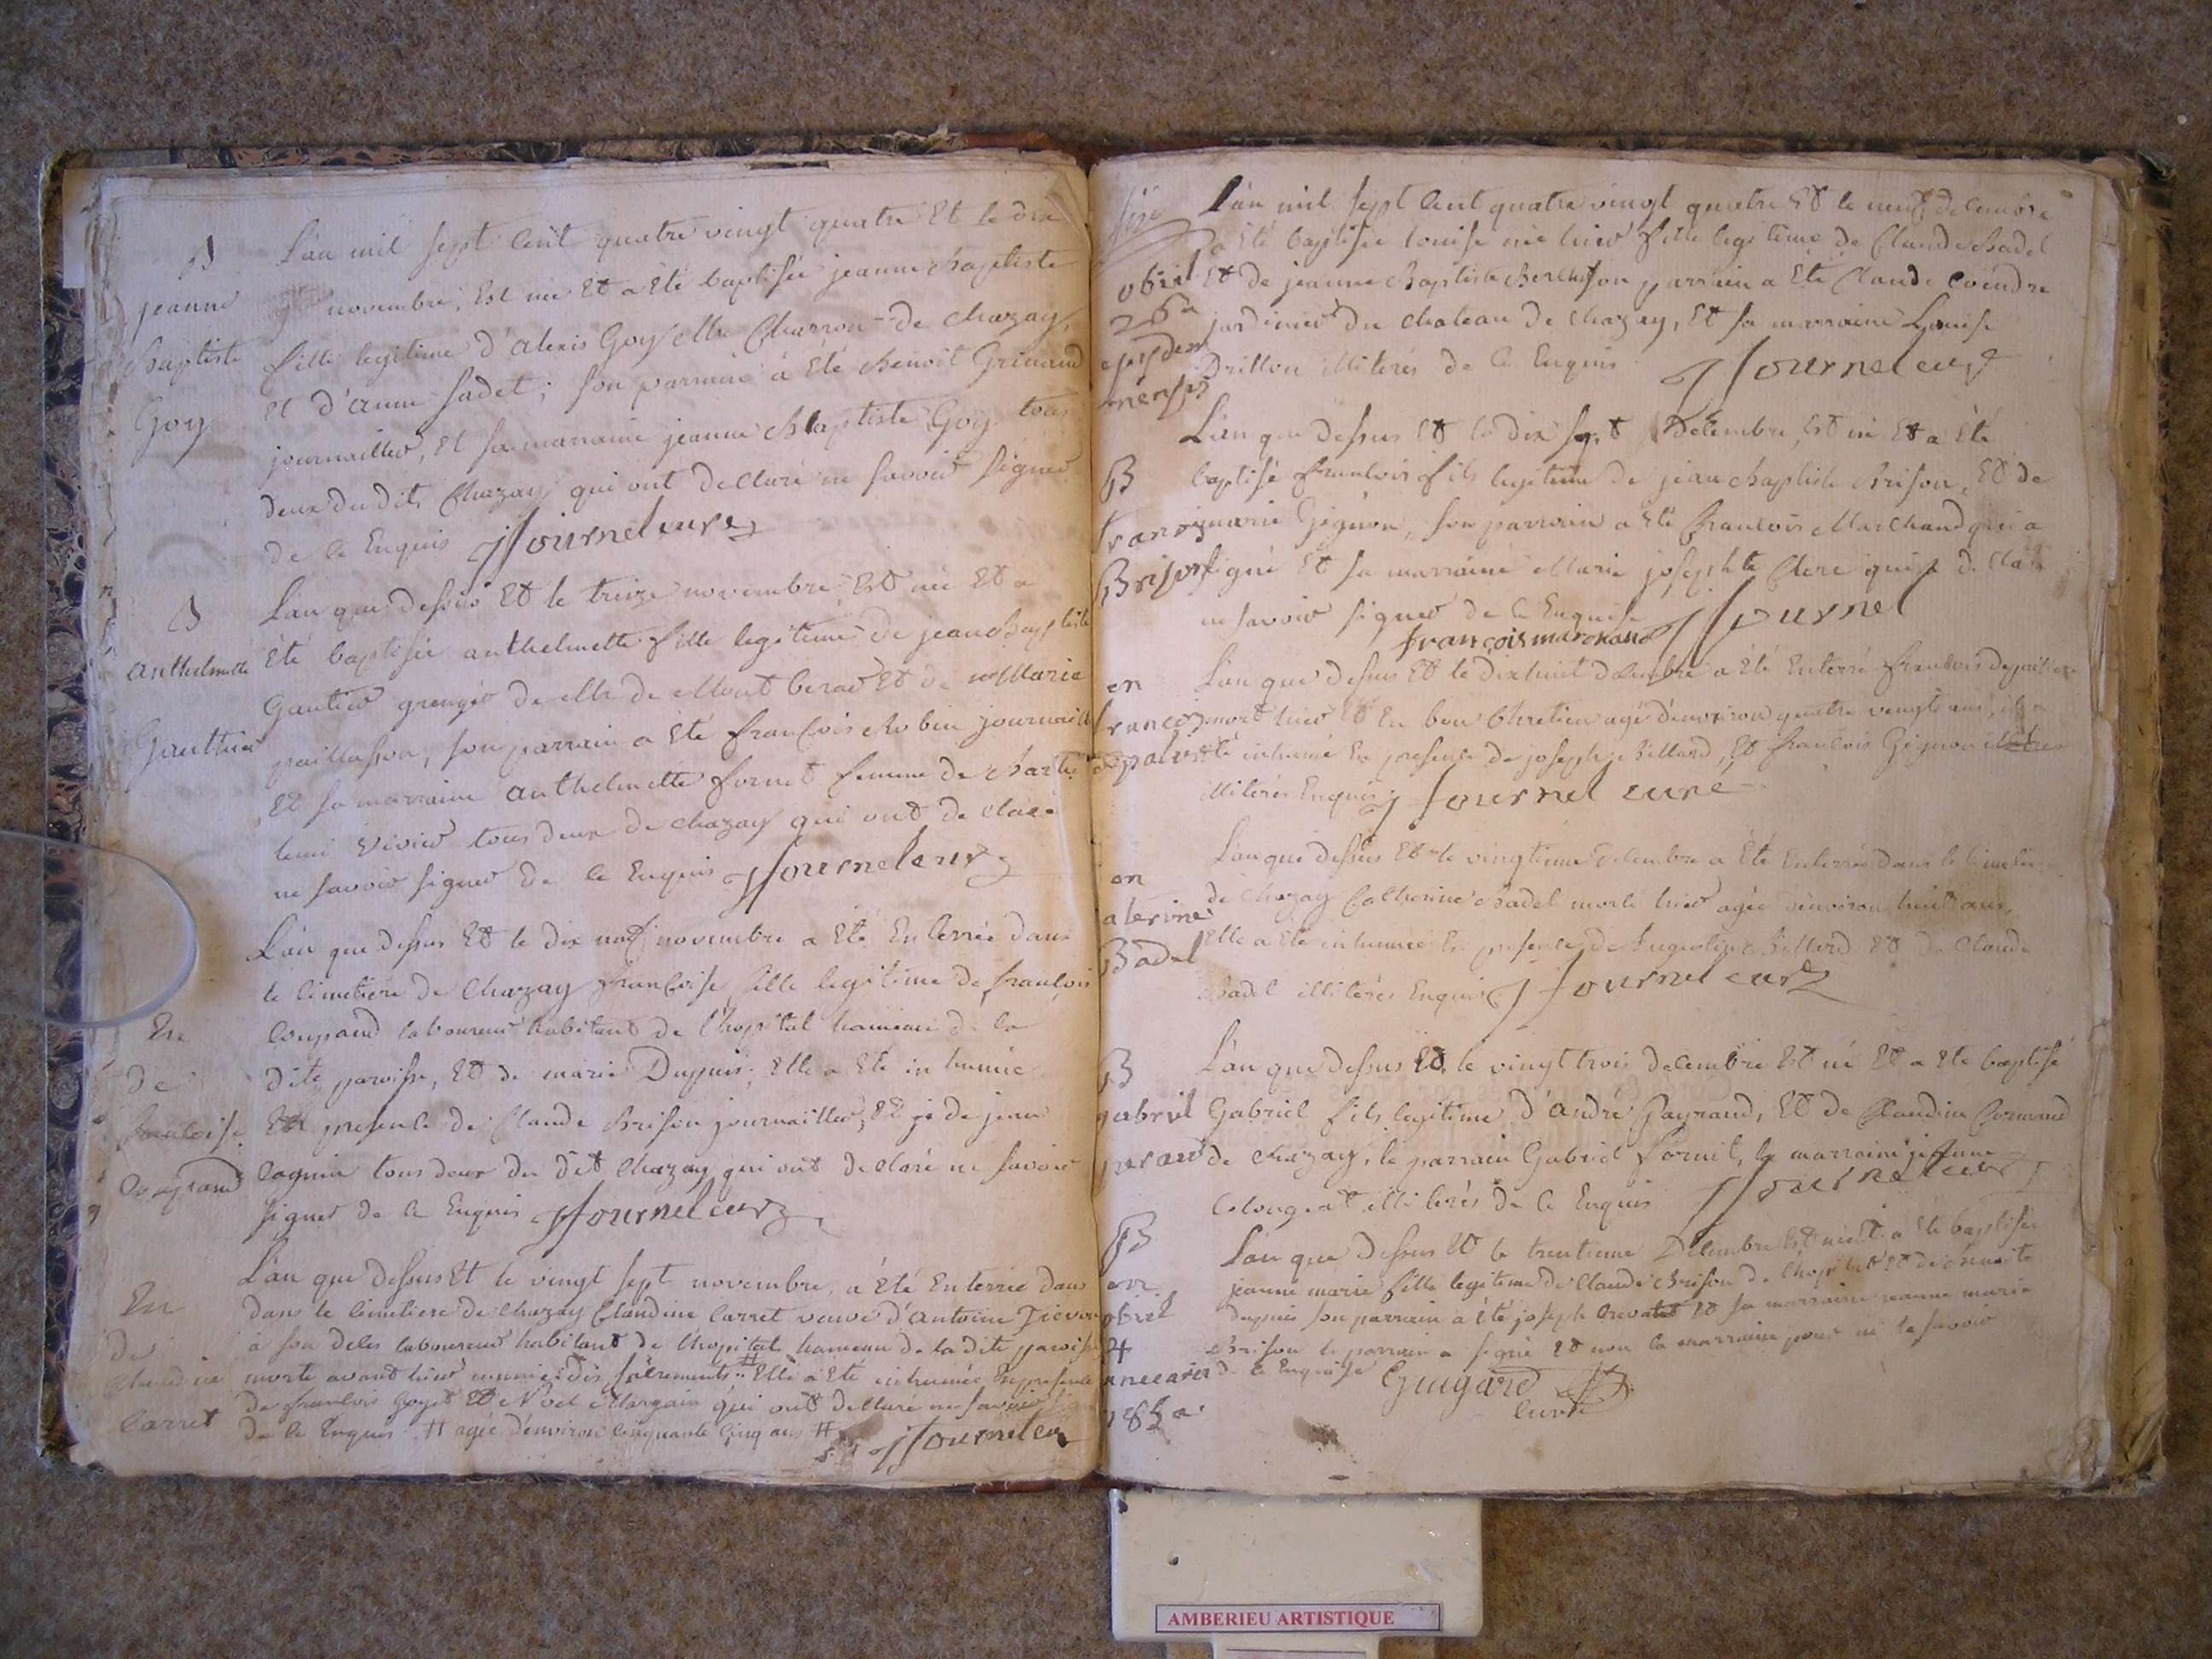 B
jeanne
Baptiste
Goy
L'an mil sept cent quatre vingt quatre Et le dix
novembre, Est née Et a Eté baptisée jeanne baptiste
fille legitime d'alexis Goy Mtre Charron de chazay,
Et d'anne sadet; son parrain a été Benoit Grinand
journaillier, Et sa marraine jeanne Baptiste Goy tous
deux du dit Chazay qui ont declaré ne savoir signer
de ce Enquis Journel curé
B
anthelmette
Gauthier
L'an que dessus Et le treize novembre Est née Et a
Eté baptisée anthelmette fille legitime de jean Baptiste
Gautier granger de Mr de Mont Et de Marie
paillasson, son parrain a Eté francois Robin journaill
Et sa marraine anthelmette fornet femme de
vivier tous deux de chazay qui ont declaré
ne savoir signer de ce Enquis Journel curé
En
de
francoise
Coupand
L'an que dessus Et le dix neuf novembre a Eté Enterrée dans
le cimetiere de Chazay françoise fille legitime de francois
Coupand laboureur habitant de l'hopital hameau de la
dite paroisse, Et de marie Dupuis; Elle a Eté inhumée
En presence de Claude Brison journaillier, Et de jean
Cagnin tous deux du dit Chazay qui ont declaré ne savoir
signer de ce Enquis Journel curé
En
de
Claudine
Carret
L'an que dessus Et le vingt sept novembre, a Eté Enterrée dans
dans le cimetiere de Chazay Claudine Carret veuve d'antoine
à son deces laboureur habitant de l'hopital hameau de la dite paroisse
morte avant hier munie des sacrements # Elle a Eté inhumée En presence
de francois Goyet Et Noel Margain qui ont declaré ne savoir
de ce Enquis # agée d'environ cinquante cinq ans # Journel cu
obiit
26a
ejusdem
mensis
L'an mil sept cent quatre vingt quatre Et le neuf decembre
a Eté baptisée louise née hier fille legitime de Claude Badel
Et de jeanne Baptiste son parrain a Eté Claude Coindre
jardinier du chateau de chazay, Et sa marraine Louise
Drillon illiterés de ce Enquis Journel curé
B
francois
Brison
L'an que dessus Et le dix sept Decembre, Est né Et a Eté
baptisé francois fils legitime de jean Baptiste Brison, Et de
marie Gignon, son parrain a Eté francois Marchand qui a
signé Et sa marraine Marie josephte Clerc qui a declaré
ne savoir signer de ce Enquise
françois marchand Journel
en
francois
L'an que dessus Et le dix huit decembre a Eté Enterré francois
mort hier Et En bon Chretien agé d'environ quatre vingts ans, il a
Eté inhumé En presence de joseph Billard, Et francois Gignon
illiterés Enquis Journel curé
en
aterine
Badel
L'an que dessus Et le vingtieme Decembre a Eté Enterrée dans le cimetiere
de Chazay Catherine Badel morte hier agée d'environ huit ans,
Elle a Eté inhumée En presence de Augustin Billard Et de Claude
Badel illiterés Enquis Journel curé
B
gabriel
L'an que dessus Et le vingt trois decembre Est né Et a Eté baptisé
Gabriel fils legitime d'andré Payraud, Et de Claudine Cormand
de chazay, le parrain Gabriel fornet, la marraine jeanne
Colongeat illiterés de ce Enquis Journel curé
B
obiit
4
L'an que dessus Et le trentieme Decembre Est née Et a Eté baptisée
jeanne marie fille legitime de Claude Brison de l'hopital Et de benoite
dupuis son parrain a Eté joseph Et sa marraine jeanne marie
Brison le parrain a signé Et non la marraine pour ne le savoir
de ce Enquise Guigard
curé
AMBERIEU ARTISTIQUE